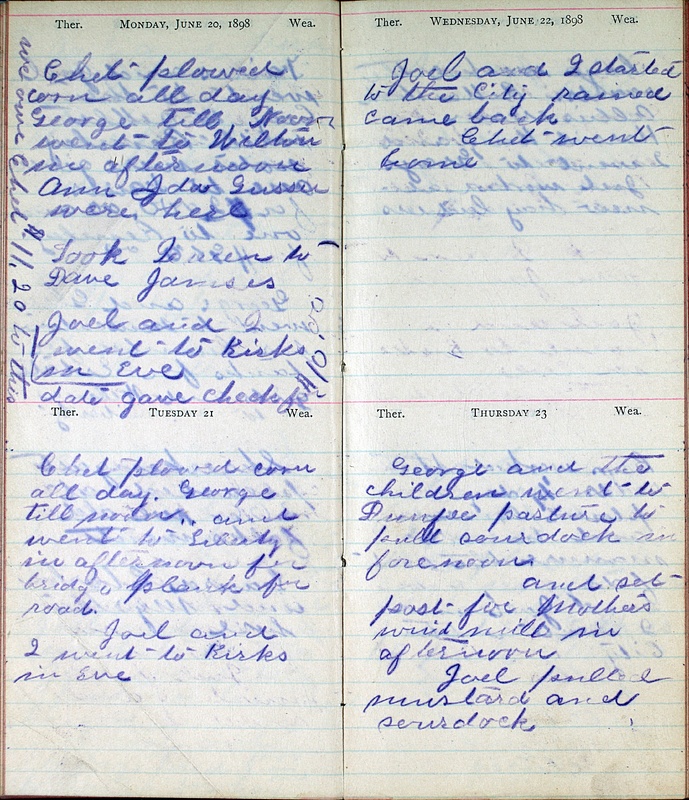 Ther. MONDAY, JUNE 20, 1898 Wea.
Chet plowed
corn all day
George till Noon
went to Wilton
in afternoon
Ann Ida Gussie
were here
Took Doren to
Dave Jamses
Joel and I
went to Kirks
in Eve
date gave check for
$10.00
we owe Chet $11.20 to this
Ther. TUESDAY 21 Wea.
Chet plowed corn
all day. George
till noon.. and
went to
in afternoon for
bridge plank for
road.
Joel and
I went to Kirks
in Eve
Ther. WEDNESDAY, JUNE 22, 1898 Wea.
Joel and I started
to the City rained
came back
Chet went
home
Ther. THURSDAY 23 Wea.
George and the
children went to
pasture to
pull sourdock in
forenoon
and set
post for Mothers
wind mill in
afternoon
Joel pulled
mustard and
sourdock